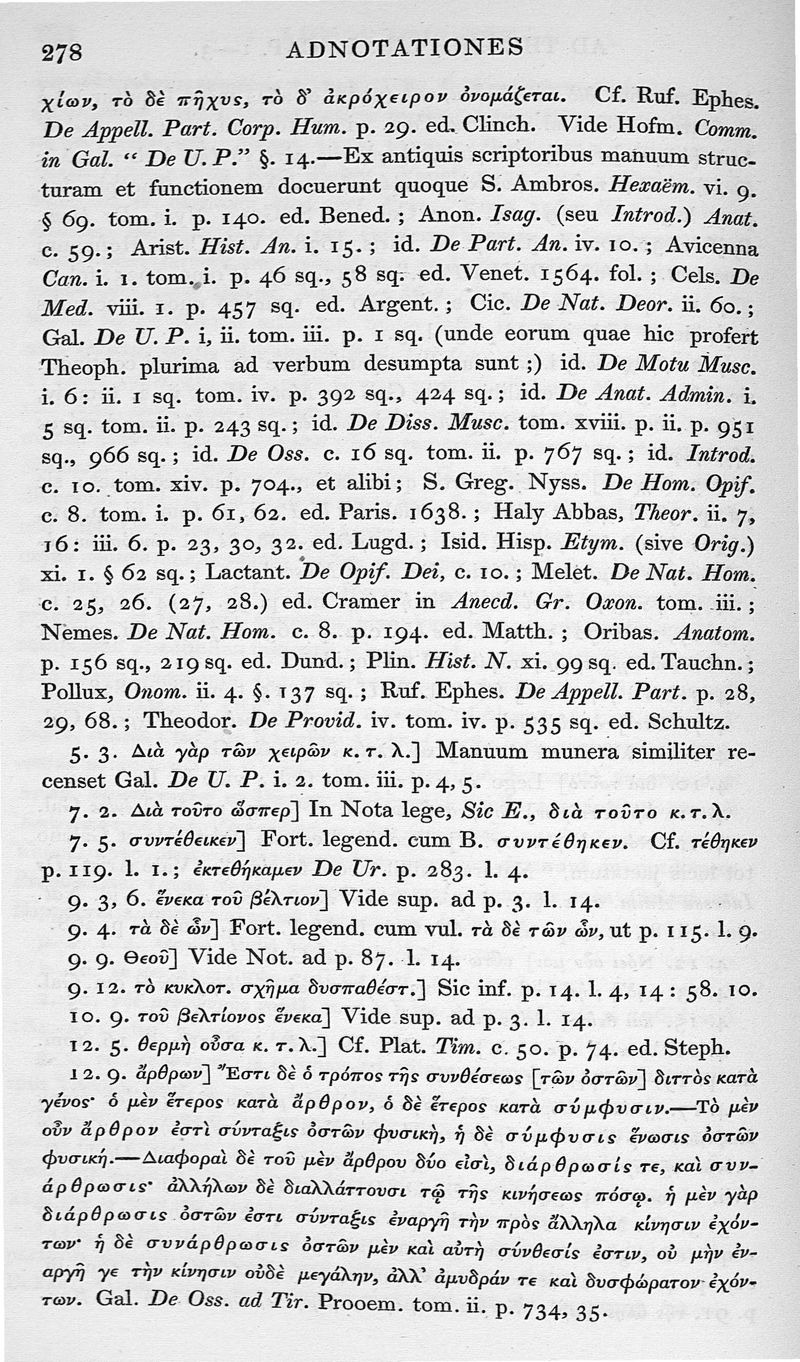 278 ADNOTATIONES
χίων, τὸ δὲ πῆχυς, τὸ δ’ ἀκρόχειρον ὀνομάζεται. Cf. Ruf. Ephes.
De Appell. Part. Corp. Hum. p. 29. ed. Clinch. Vide Hofm. Comm.
in Gal. “ De U. P.” §. 14.—Ex antiquis scriptoribus manuum struc-
turam et functionem docuerunt quoque S. Ambros. Hexaëm. vi. 9.
§ 69. tom. i. p. 140. ed. Bened. ; Anon. Isag. (seu Introd.) Anat.
c. 59. ; Arist. Hist. An. i. 15. ; id. De Part. An. iv. 10. ; Avicenna
Can. i. 1. tom. i. p. 46 sq., 58 sq. ed. Venet. 1564. fol. ; Cels. De
Med. viii. 1. p. 457 sq. ed. Argent. ; Cic. De Nat. Deor. ii. 60. ;
Gal. De U. P. i, ii. tom. iii. p. 1 sq. (unde eorum quae hic profert
Theoph. plurima ad verbum desumpta sunt ;) id. De Motu Musc.
i. 6 : ii. 1 sq. tom. iv. p. 392 sq., 424 sq. ; id. De Anat. Admin. i.
5 sq. tom. ii. p. 243 sq. ; id. De Diss. Musc. tom. xviii. p. ii. p. 951
sq., 966 sq. ; id. De Oss. c. 16 sq. tom. ii. p. 767 sq. ; id. Introd.
c. 10. tom. xiv. p. 704., et alibi ; S. Greg. Nyss. De Hom. Opif.
c. 8. tom. i. p. 61, 62. ed. Paris. 1638. ; Haly Abbas, Theor. ii. 7,
16 : iii. 6. p. 23, 30, 32. ed. Lugd. ; Isid. Hisp. Etym. (sive Orig.)
xi. 1. § 62 sq. ; Lactant. De Opif. Dei, c. 10. ; Melet. De Nat. Hom.
c. 25, 26. (27, 28.) ed. Cramer in Anecd. Gr. Oxon. tom. iii. ;
Nemes. De Nat. Hom. c. 8. p. 194. ed. Matth. ; Oribas. Anatom.
p. 156 sq., 219 sq. ed. Dund. ; Plin. Hist. N. xi. 99 sq. ed. Tauchn. ;
Pollux, Onom. ii. 4. §. 137 sq. ; Ruf. Ephes. De Appell. Part. p. 28,
29, 68. ; Theodor. De Provid. iv. tom. iv. p. 535 sq. ed. Schultz.
5. 3. Διὰ γὰρ τῶν χειρῶν κ. τ. λ.] Manuum munera similiter re-
censet Gal. De U. P. i. 2. tom. iii. p. 4, 5.
7. 2. Διὰ τοῦτο ὥσπερ] In Nota lege, Sic E., διὰ τοῦτο κ. τ. λ.
7. 5. συντέθεικεν] Fort. legend. cum B. συντέθηκεν. Cf. τέθηκεν
p. 119. l. 1. ; ἐκτεθήκαμεν De Ur. p. 283. l. 4.
9. 3, 6. ἕνεκα τοῦ βέλτιον] Vide sup. ad p. 3. l. 14.
9. 4. τὰ δὲ ὧν] Fort. legend. cum vul. τὰ δὲ τῶν ὧν, ut p. 115. l. 9.
9. 9. Θεοῦ] Vide Not. ad p. 87. l. 14.
9. 12. τὸ κυκλοτ. σχῆμα δυσπαθέστ.] Sic inf. p. 14. l. 4, 14 : 58. 10.
10. 9. τοῦ βελτίονος ἕνεκα] Vide sup. ad p. 3. l. 14.
12. 5. θερμὴ οὖσα κ. τ. λ.] Cf. Plat. Tim. c. 50. p. 74. ed. Steph.
12. 9. ἄρθρων] Ἔστι δὲ ὁ τρόπος τῆς συνθέσεως [τῶν ὀστῶν] διττὸς κατὰ
γένος· ὁ μὲν ἕτερος κατὰ ἄρθρον, ὁ δὲ ἕτερος κατὰ σύμφυσιν.—Τὸ μὲν
οὖν ἄρθρον ἐστὶ σύνταξις ὀστῶν φυσικὴ, ἡ δὲ σύμφυσις ἕνωσις ὀστῶν
φυσική.—Διαφοραὶ δὲ τοῦ μὲν ἄρθρου δύο εἰσὶ, διάρθρωσίς τε, καὶ συν-
άρθρωσις· ἀλλήλων δὲ διαλλάττουσι τῷ τῆς κινήσεως πόσῳ. ἡ μὲν γὰρ
διάρθρωσις ὀστῶν ἐστι σύνταξις ἐναργῆ τὴν πρὸς ἄλληλα κίνησιν ἐχόν-
των· ἡ δὲ συνάρθρωσις ὀστῶν μὲν καὶ αὐτὴ σύνθεσίς ἐστιν, οὐ μὴν ἐν-
αργῆ γε τὴν κίνησιν οὐδὲ μεγάλην, ἀλλ’ ἀμυδράν τε καὶ δυσφώρατον ἐχόν-
των. Gal. De Oss. ad Tir. Prooem. tom. ii. p. 734, 35.